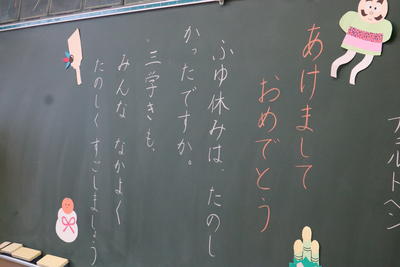 あけまして
おめでとう
ふゆ休みは、たのし
かったですか。
三学きも、
みんな なかよく
たのしく すごしましょう